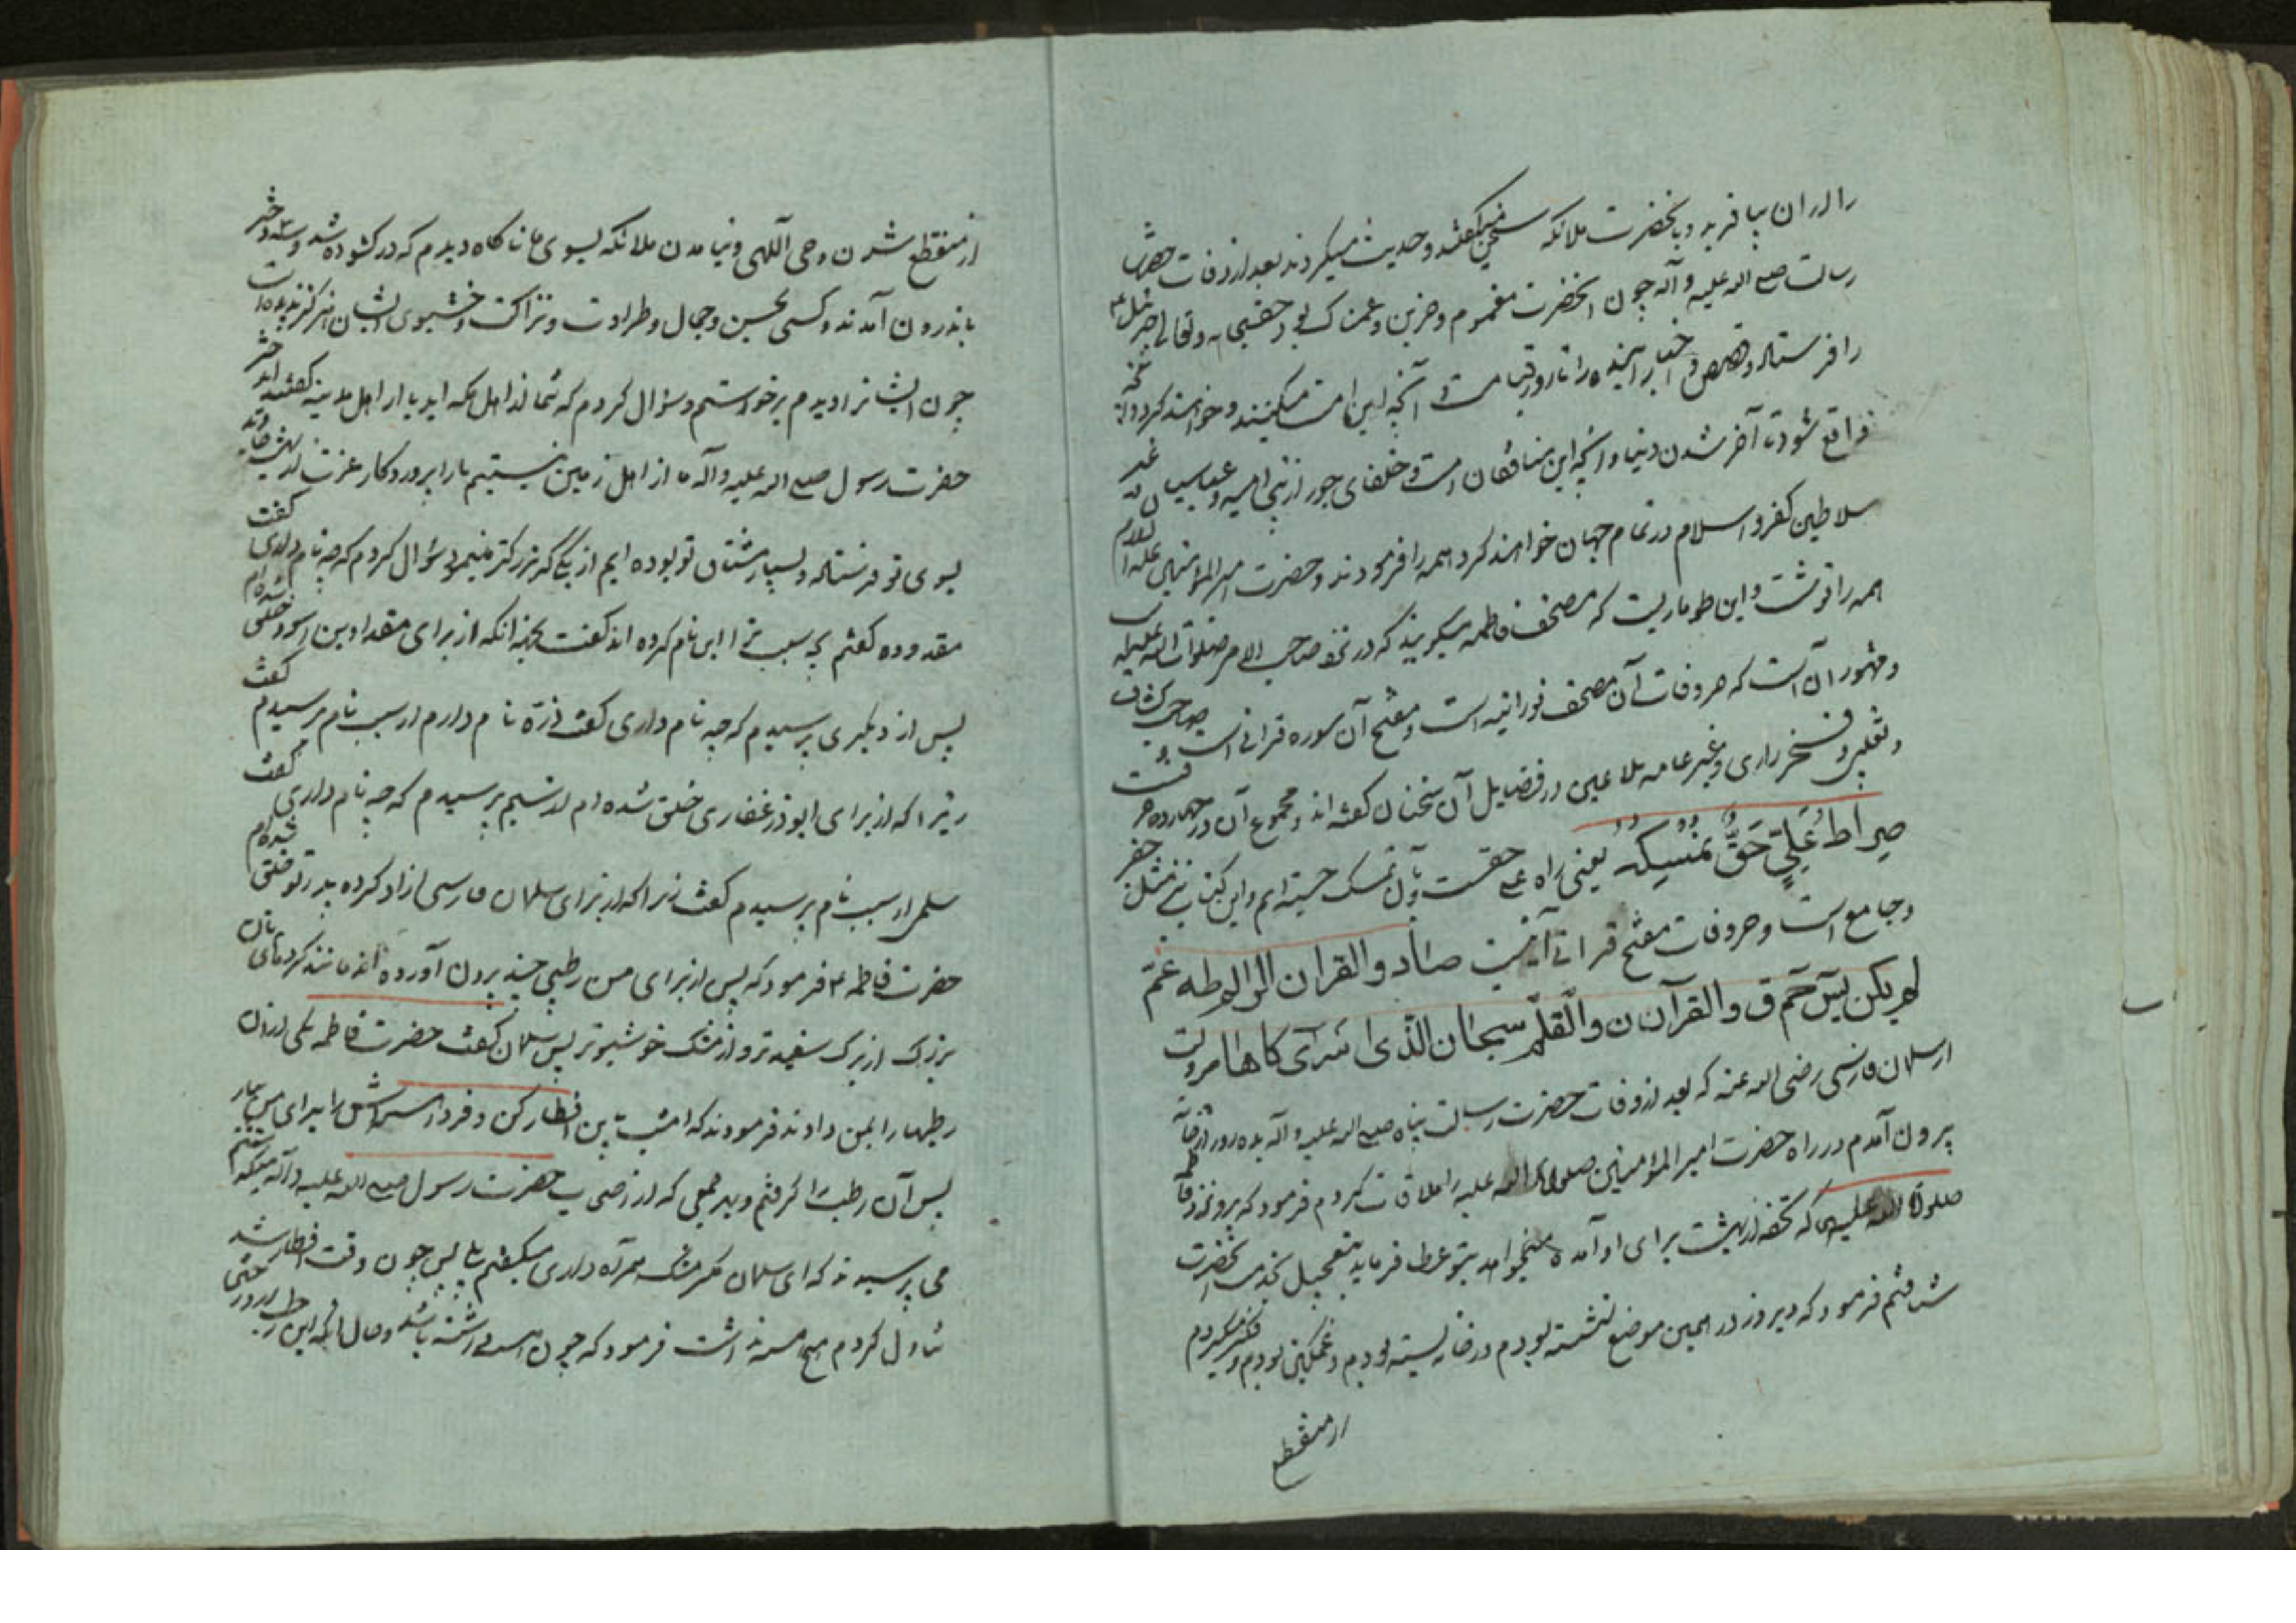 را در ان بیافرید و بحضرت ملائکه سخن میکفتند و حدیث میکردند بعد از وفات حضرت
رسالت صلی الله علیه و آله چون انحضرت مغموم و حزین و غمناک بود حقسبحانه و تعالی جبرئیل
را فرستاد و قصص و اخبار آینده را تا روز قیامت و آنچه این امت میکنند و خواهند کرد و آنچه
واقع شود تا آخر شدن دنیا و آنچه این منافقان امت و خلفای جور از بنی امیه و عباسیان و غیر
سلاطین کفر و اسلام در تمام جهان خواهند کرد همه را فرمودند و حضرت امیر المؤمنین علیه السلام
همه را نوشت و این طوماریست که مصحف فاطمه میکویند که در نزد صاحب الامر صلوات الله علیه
و مشهور آن است که حروفات آن مصحف نورانیه است و مفتح آن سوره قرانی است و صاحب کشاف
و ثعلبی و فخر رازی و غیر عامه ملاعین در فضایل آن سخنان کفته اند و مجموع آن در چهارده حرفست
صِراطُ عَلِیٍّ حَقٌّ نُمْسِکُهُ یعنی راه علی حقست و بآن تمسک جسته ایم و این کتابی مثل جفر
و جامع است و حروفات مفتح قرانی آنست صاد والقران الر المر طه عم
لم یکن یس حم ق والقرآن ن والقلم سبحان الذی اسری کاها مرویت
از سلمان فارسی رضی الله عنه که بعد از وفات حضرت رسالت پناه صلی الله علیه و آله بده روز از خانه
بیرون آمدم در راه حضرت امیر المؤمنین صلوات الله علیه را ملاقات کردم فرمود که برو نزد فاطمه
صلوة الله علیها که تحفه از بهشت برای او آمده میخواهد بتو عطا فرماید بتعجیل بخدمت انحضرت
شتافتم فرمود که دیروز در همین موضع نشسته بودم در خانه بسته بودم و غمکین بودم و فکر میکردم
از منقطع
از منقطع شدن وحی آلهی و نیامدن ملائکه بسوی ما ناکاه دیدم که در کشوده شد و سه دختر
باندرون آمدند و کسی بحسن و جمال و طراوت و نزاکت و خشبوی ایشان هرکز ندیده است
چون ایشانرا دیدم برخواستم و سؤال کردم که شما از اهل مکه اید یا از اهل مدینه کفتند ای دختر
حضرت رسول صلی الله علیه و آله ما از اهل زمین نیستیم ما را پروردکار عزت از بهشت جاوید
بسوی تو فرستاده و بسیار مشتاق تو بوده ایم از یکی که بزرکتر مینمود سؤال کردم که چه نام داری کفت
مقدوده کفتم بچه سبب ترا این نام کرده اند کفت بجهة انکه از برای مقداد بن اسود خلق شده ام
پس از دیکری پرسیدم که چه نام داری کفت ذرّه نام دارم از سبب نام پرسیدم کفت
زیرا که از برای ابوذر غفاری خلق شده ام از سیم پرسیدم که چه نام داری کفت
سلمی از سبب نام پرسیدم کفت زیرا که از برای سلمان فارسی ازاد کرده پدر تو خلق شده ام
حضرت فاطمه ع فرمود که پس از برای من رطبی چند بیرون آورده اند مانند کردهای نان
بزرک از برف سفیدتر و از مشک خوشبوتر پس سلمان کفت حضرت فاطمه یکی از ان
رطبها را بمن دادند فرمودند که امشب باین افطار کن و فردا هسته اش را برای من بیار
پس آن رطب را کرفتم و بهر جمعی که از اصحاب حضرت رسول صلی الله علیه و آله میکذشتم
می پرسیدند که ای سلمان مکر مشک همراه داری میکفتم بلی پس چون وقت افطار شد
تناول کردم هیچ هسته نداشت فرمود که چون هسته داشته باشد و حال آنکه این رطب از درختی